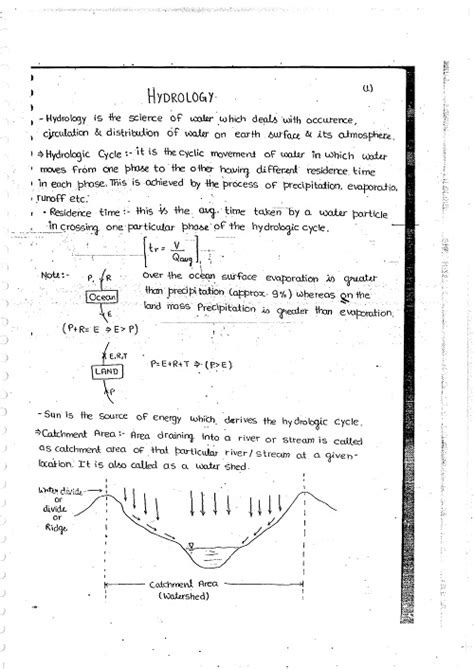 (1)
HYDROLOGY
- Hydrology is the science of water which deals with occurence,
circulation & distribution of water on earth surface & its atmosphere.
⇒ Hydrologic Cycle :- it is the cyclic movement of water in which water
moves from one phase to the other having different residence time
in each phase. This is achieved by the process of precipitation, evaporatio,
runoff etc.
• Residence time :- this is the avg. time taken by a water particle
in crossing one particular phase of the hydrologic cycle.
[tr = V / Qavg]
Note :- over the ocean surface evaporation is greater
than precipitation (approx 9%) whereas on the
land mass Precipitation is greater than evaporation.
P, R
Ocean
E
(P+R= E ⇒ E>P)
E,R,T
LAND
P
P=E+R+T ⇒ (P>E)
- Sun is the source of energy which derives the hydrologic cycle.
⇒ Catchment Area :- Area draining into a river or stream is called
as catchment area of that particular river/stream at a given
location. It is also called as a water shed.
Water divide
or
divide
or
Ridge
Catchment Area
(Watershed)